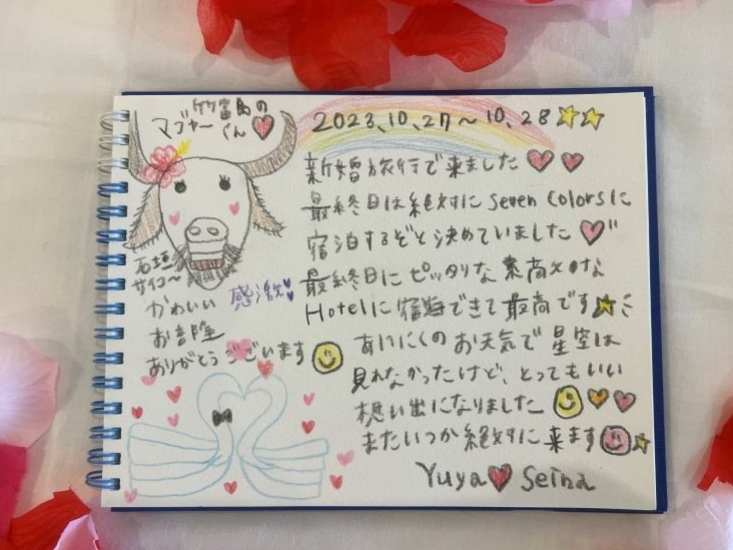 竹富島の
マブヤーくん
2023.10.27〜10.28
新婚旅行で来ました
最終日は絶対に Seven Colorsに
宿泊するぞと決めていました
最終日にピッタリな素敵な
Hotelに宿泊できて最高です
あいにくのお天気で星空は
見れなかったけど、とってもいい
想い出になりました
またいつか絶対に来ます
Yuya Seina
石垣
サイコ〜
かわいい 感激
お部屋
ありがとうございます